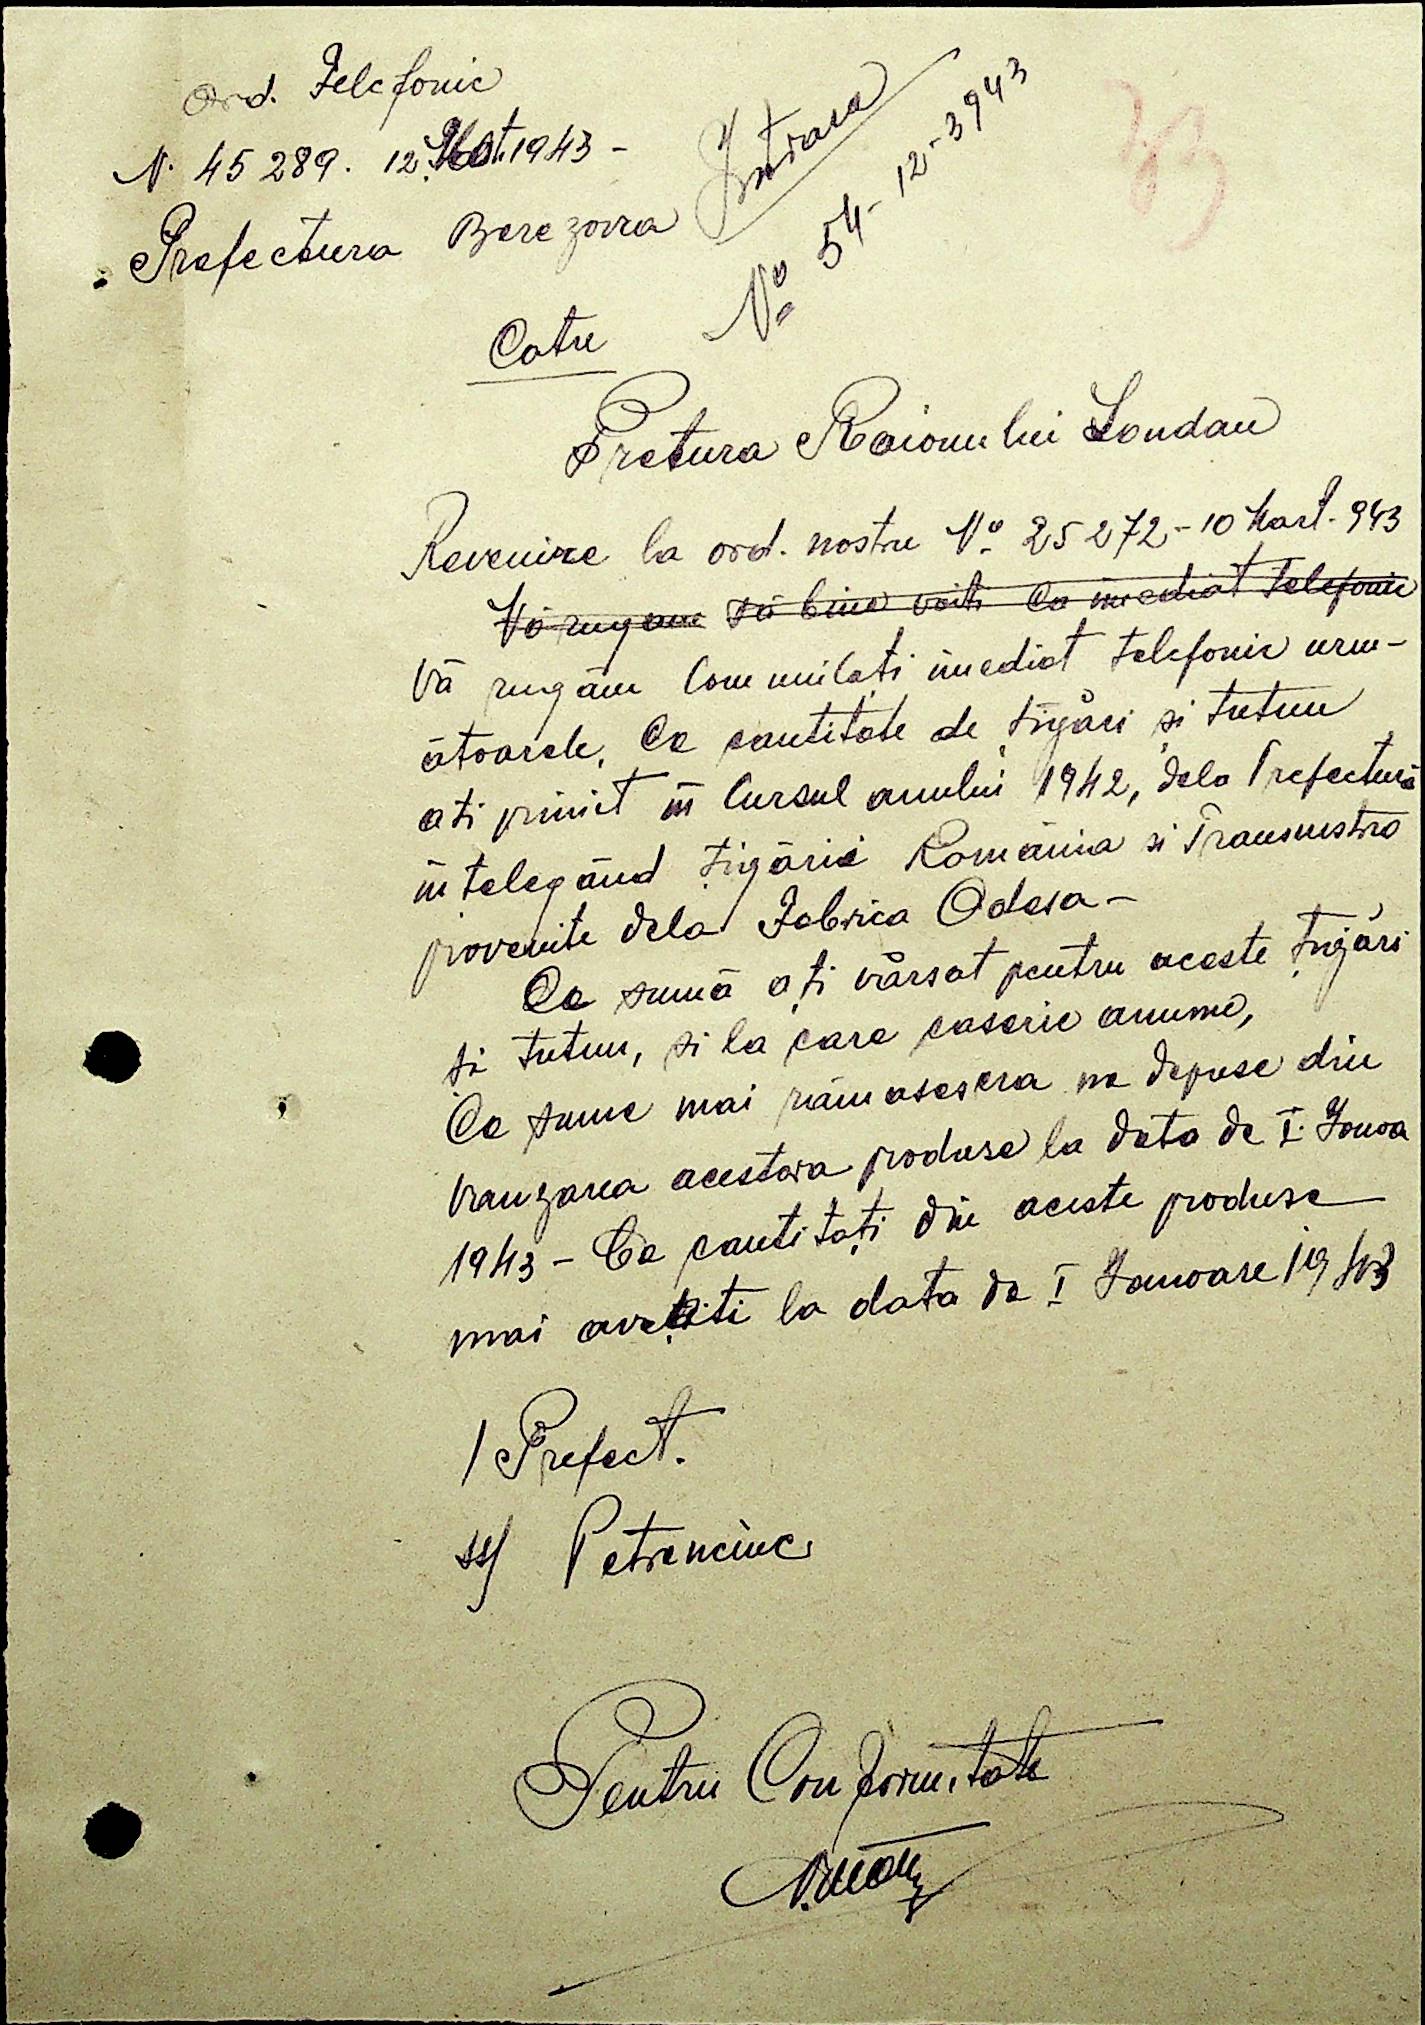 Ord. Telefonic
N. 45289. 12 Mart. 1943 -
Prefectura Berezovca
Intrare
Nº 54-12-3943
Catre
Pretura Raionului Landau
Revenire la ord. nostru Nº 25272 - 10 Mart. 943
Vă rugam să bine voiti Ca imediat telefonic
Vă rugăm Comunicați imediat telefonic urm-
ătoarele, Ce cantitate de țigări și tutun
ati primit în Cursul anului 1942, dela Prefectură
întelegând țigări România si Transnistra
provenite dela Fabrica Odesa -
Ce sumă ați vărsat pentru aceste țigări
și tutun, și la care caserie anume,
Ce sume mai rămăsesera ne depuse din
vanzarea acestora produse la data de I. Ianoa
1943 - Ce cantitați din aceste produse
mai aveti la data de I Ianoare 1943
/ Prefect.
ss/ Petrenciuc
Pentru Conformitate